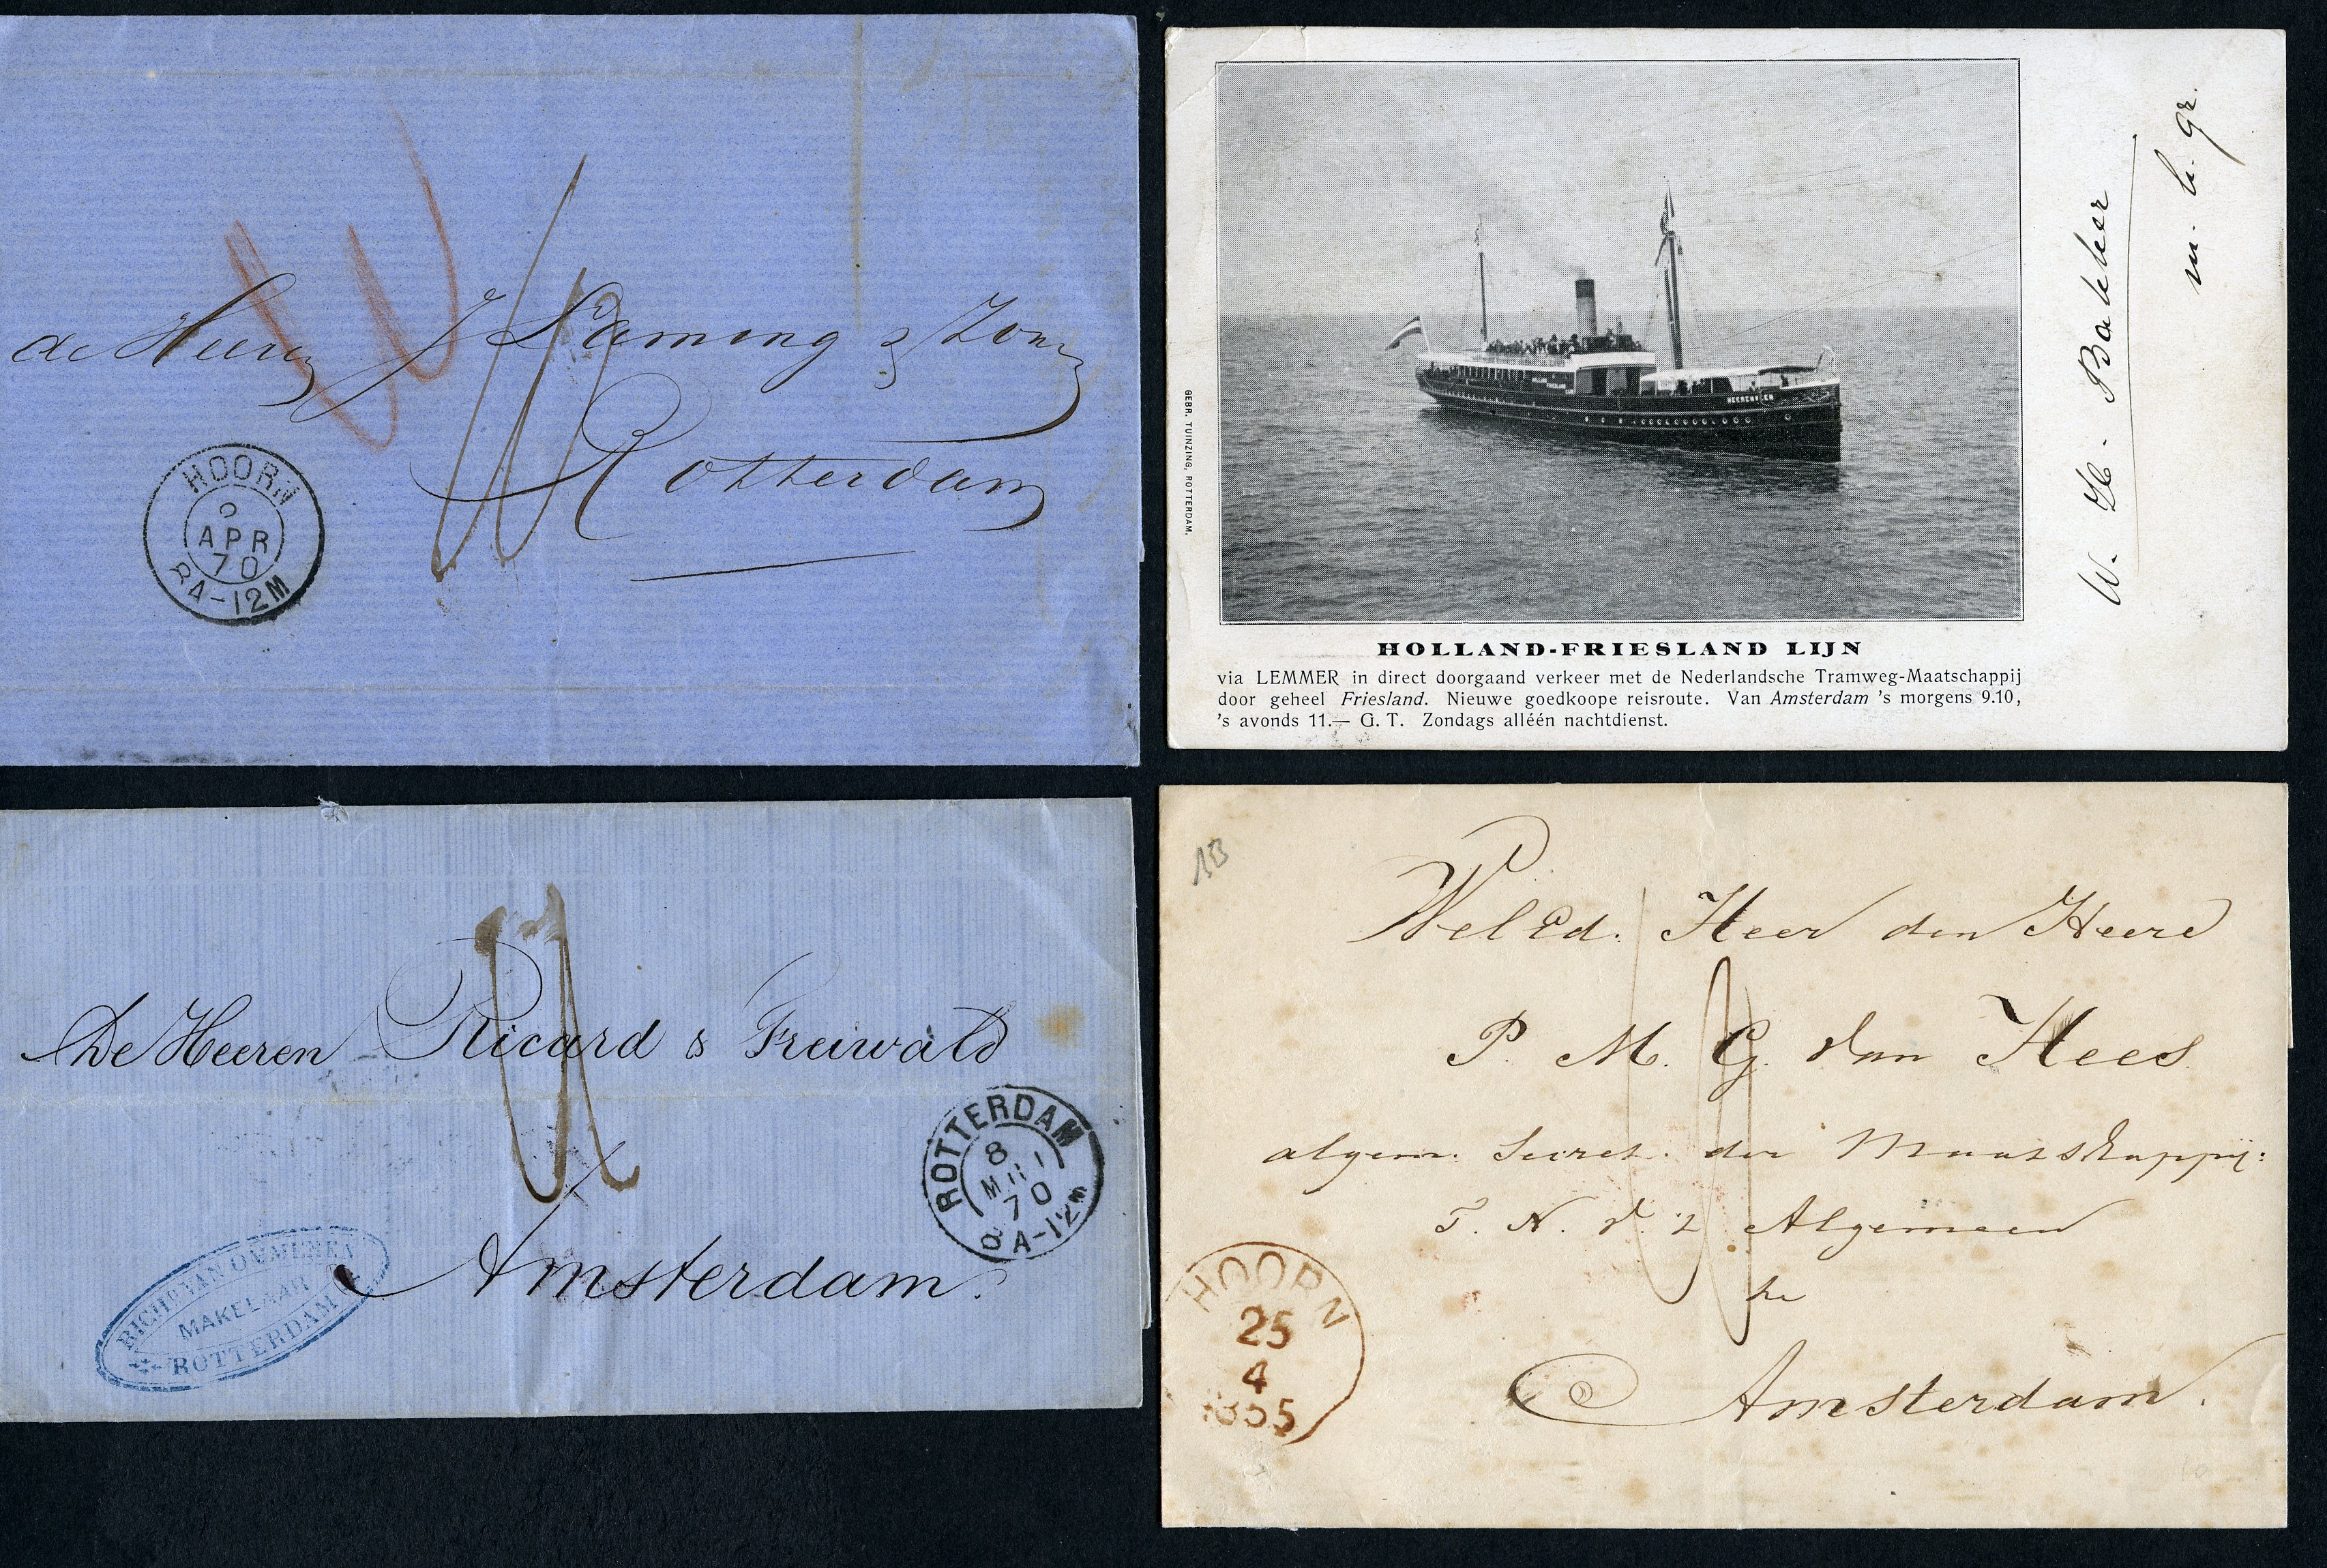 de Heeren J Laming & Zonen
Rotterdam
HOORN
APR
70
8A-12M
HOLLAND
FRIESLAND
HEERENVEEN
GEBR. TUINZING, ROTTERDAM.
HOLLAND-FRIESLAND LIJN
via LEMMER in direct doorgaand verkeer met de Nederlandsche Tramweg-Maatschappij
door geheel Friesland. Nieuwe goedkoope reisroute. Van Amsterdam 's morgens 9.10,
's avonds 11.— G. T. Zondags alléén nachtdienst.
W. H. Bakker
m. h. gr.
De Heeren Ricard & Freiwald
Amsterdam.
ROTTERDAM
8
70
8A-12M
VAN OMMEREN
MAKELAAR
ROTTERDAM
AB
Wel Ed. Heer den Heere
P. M. G. van Hees.
algem: Secret. der Maatschappij:
T. N. v. 't Algemeen
te
Amsterdam.
HOORN
25
4
1855